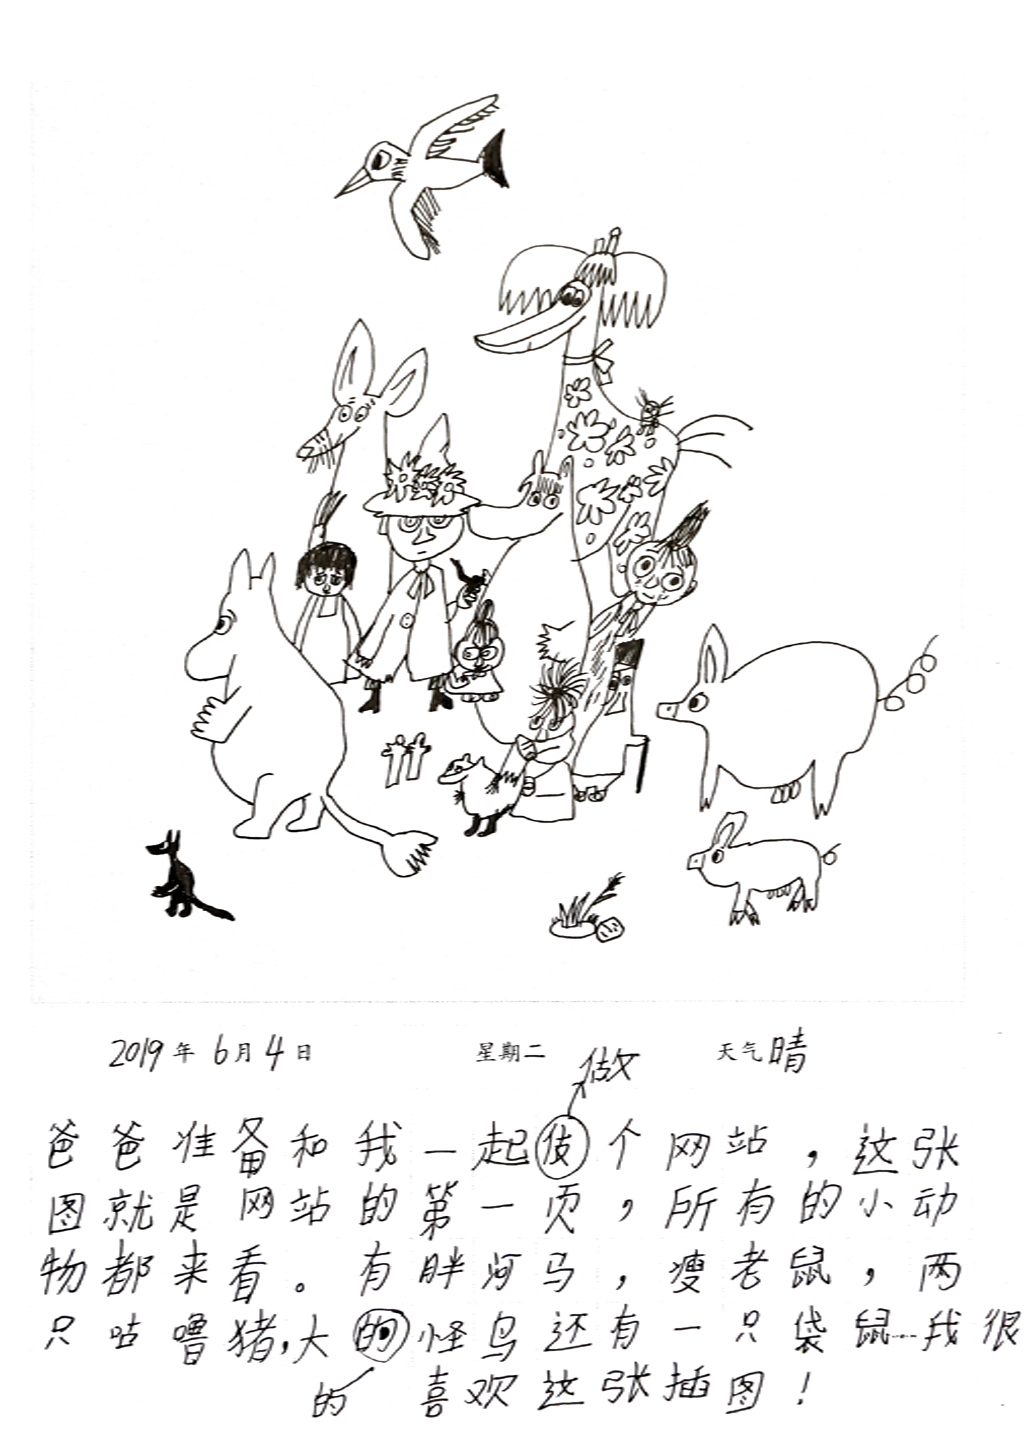 2019年6月4日 星期二 天气晴
做
爸爸准备和我一起伎个网站，这张
图就是网站的第一页，所有的小动
物都来看。有胖河马，瘦老鼠，两
只咕噜猪，大的怪鸟还有一只袋鼠……我很
的 喜欢这张插图！